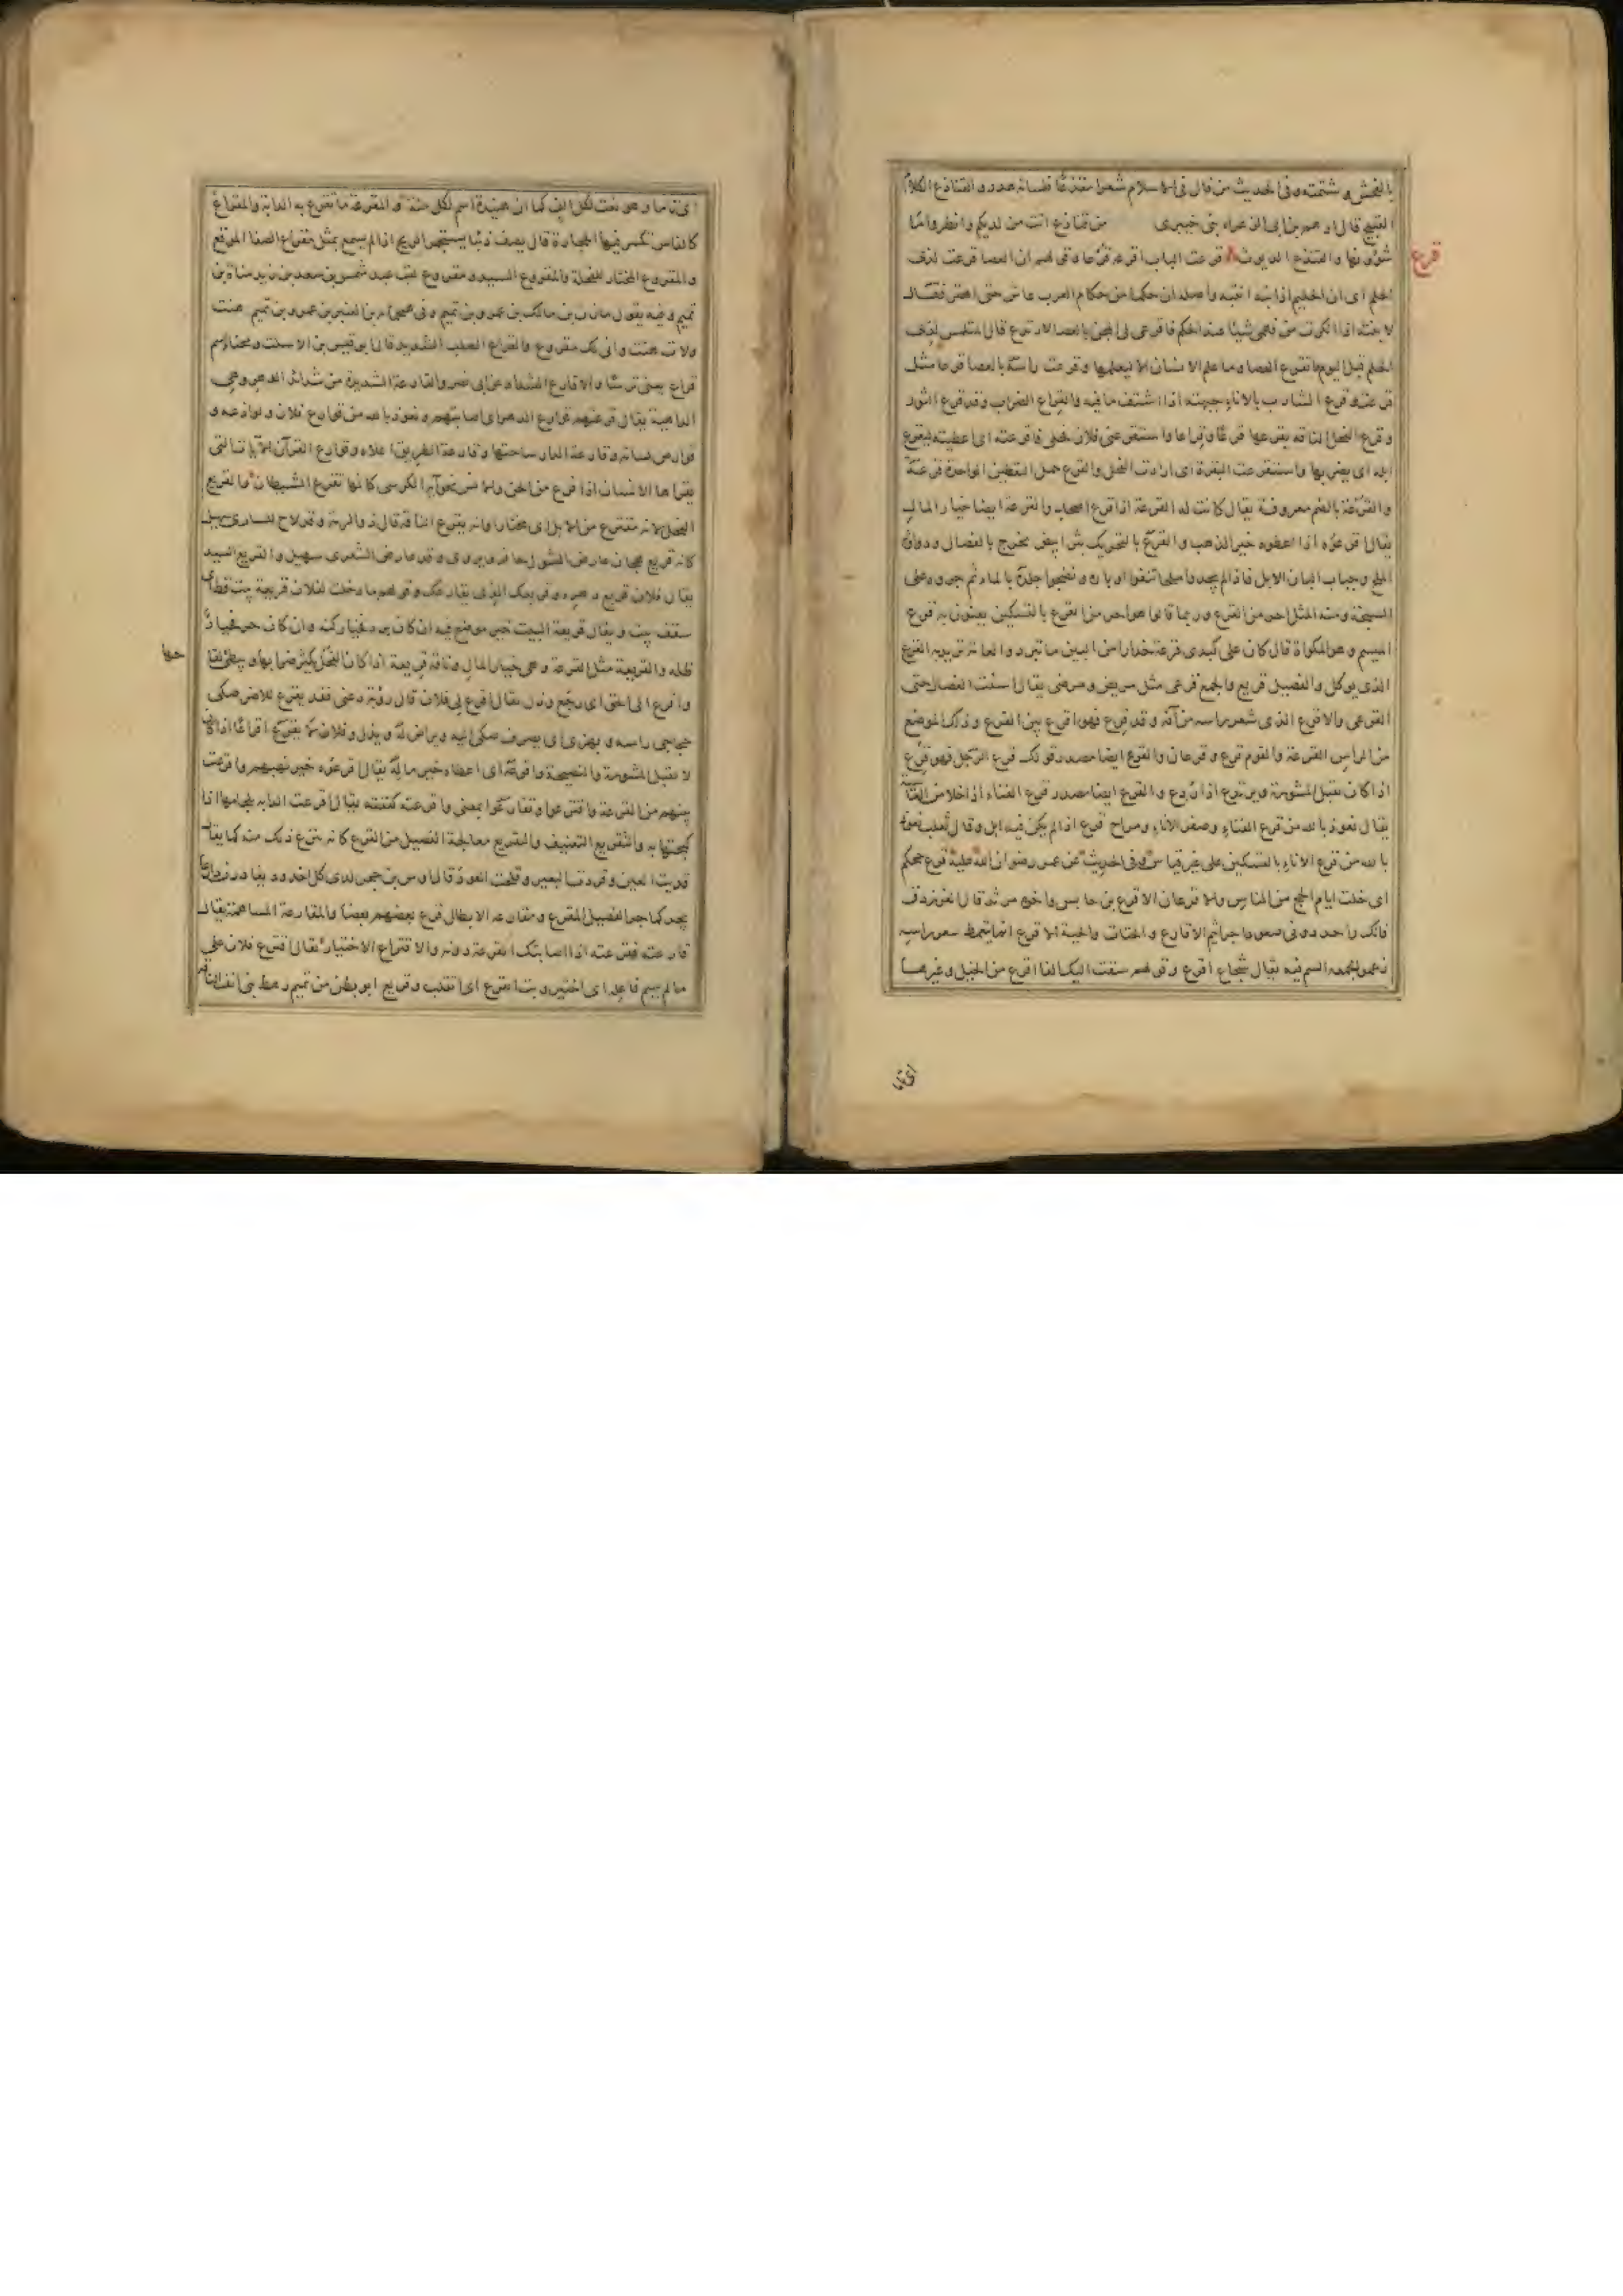 بالفحش وشتمته وفى الحديث من قال فى الاسلام شعرا مقذعا فلسانه هدر والقناذع الكلام
القبيح قال ادهم بن ابى الزعراء بنى خيبرى من قناذع اتت من لديكم وانظروا ما
شؤونها والقنذع الديوث قرعت الباب اقرعه قرعا وقولهم ان العصا قرعت لذى
قرع
الحلم اى ان الحليم اذا نبه انتبه واصله ان حكما من حكام العرب عاش حتى اهتر فقال
لابنته اذا انكرت من فهمى شيئا عند الحكم فاقرعى لى المجن بالعصا لارتدع قال المتلمس لذى
الحلم قبل اليوم ما تقرع العصا وما علم الانسان الا ليعلما وقرعت راسه بالعصا قرعا مثل
فرعته وقرع الشارب بالاناء جبهته اذا اشتف ما فيه والقراع الضراب وقد قرع الثور
وقرع الفحل الناقة يقرعها قرعا وقراعا واستقرعنى فلان فحلى فاقرعته اى اعطيته ليقرع
ابله اى يضربها واستقرعت البقرة اى ارادت الفحل والقرع حمل اليقطين الواحدة قرعة
والقرعة بالضم معروفة يقال كانت له القرعة اذا قرع اصحابه والقرعة ايضا خيار المال
يقال اقرعوه اذا اعطوه خير النهب والقرع بالتحريك بثر ابيض يخرج بالفصال ودواؤه
الملح وجباب البان الابل فاذا لم يجدوا ملحا نتفوا اوباره ونضحوا جلده بالماء ثم جروه على
السبخة ومنه المثل احر من القرع وربما قالوا هو احر من القرع بالتسكين يعنون به قرع
الميسم وهو المكواة قال كان على كبدى قرعة حذارا من البين ما تبرد والعامة تريد به القرع
الذى يوكل والفصيل قريع والجمع قرعى مثل مريض ومرضى يقال استنت الفصال حتى
القرعى والاقرع الذى ذهب شعر راسه من آفة وقد قرع فهو اقرع بين القرع وذلك الموضع
من الراس القرعة والقوم قرع وقرعان والقرع ايضا مصدر قولك قرع الرجل فهو قرع
اذا كان يقبل المشورة ويرتدع اذا ردع والقرع ايضا مصدر قرع الفناء اذا خلا من الغاشية
يقال نعوذ بالله من قرع الفناء وصفر الاناء ومراح قرع اذا لم يكن فيه ابل وقال ثعلب نعوذ
بالله من قرع الاناء بالتسكين على غير قياس وفى الحديث عن عمر رضوان الله عليه قرع حجكم
اى خلت ايام الحج من الناس والاقرعان الاقرع بن حابس واخوه مرثد قال الفرزدق
فانك واجد دونى صعودا جراثيم الاقارع والحتات والحية الاقرع انما يتمعط شعر راسه
زعموا لجمعه السم فيه يقال شجاع اقرع وقولهم سقت اليك الفا اقرع من الخيل وغيرها
اى تاما
اى تاما وهو نعت لكل الف كما ان هنيدة اسم لكل مئة والمقرعة ما تقرع به الدابة والمقراع
كالفاس تكسر فيها الحجارة قال يصف ذئبا يستخبر الريح اذا لم يسمع بمثل مقراع الصفا الموقع
والمقروع المختار للفحلة والمقروع السيد ومقروع لقب عبد شمس بن سعد بن زيد مناة بن
تميم وفيه يقول مازن بن مالك بن عمرو بن تميم وفى هيجمانة بن العنبر بن عمرو بن تميم حنت
ولات هنت وانى لك مقروع والقراع الصلب الشديد قال ابو قيس بن الاسلت ومجنأ اسمر
قراع يعنى ترسا والاقارع الشداد عن ابى نصر والقارعة الشديدة من شدائد الدهر وهى
الداهية يقال قرعتهم قوارع الدهر اى اصابتهم ونعوذ بالله من قوارع فلان ولواذعه و
قوارص لسانه وقارعة الدار ساحتها وقارعة الطريق اعلاه وقوارع القرآن الآيات التى
يقرأها الانسان اذا فزع من الجن والانس نحو آية الكرسى كانها تقرع الشيطان والقريع
الفحل لانه مقترع من الابل اى مختار او لانه يقرع الناقة قال ذو الرمة وقد لاح للسارى سهيل
كانه قريع هجان عارض الشول جافر ويروى وقد عارض الشعرى سهيل والقريع السيد
يقال فلان قريع دهره وقريعك الذى يقارعك وقولهم ما دخلت لفلان قريعة بيت قط اى
سقف بيت ويقال قريعة البيت خير موضع فيه ان كان برد فخيار كنه وان كان حر فخيار
ظله والقريعة مثل القرعة وهى خيار المال وناقة قريعة اذا كان الفحل يكثر ضرابها ويبطئ لقا
حها
واقرع الى الحق اى رجع وذل يقال اقرع لى فلان قال رؤبة دعنى فقد يقرع للاضز صكى
حجاجى راسه وبهزى اى يصرف صكى اليه ويراض له ويذل وفلان لا يقرع اقراعا اذا كان
لا يقبل المشورة والنصيحة واقرعه اى اعطاه خير ماله يقال اقرعوه خير نهبهم واقرعت
بينهم من القرعة واقترعوا وتقارعوا بمعنى واقرعته كففته يقال اقرعت الدابة بلجامها اذا
كبحتها به والتقريع التعنيف والتقريع معالجة الفصيل من القرع كانه ينزع ذلك منه كما يقال
قذيت العين وقردت البعير وقلحت العود قال اوس بن حجر لدى كل اخدود يغادرن دارعا
يجر كما جر الفصيل المقرع ومقارعة الابطال قرع بعضهم بعضا والمقارعة المساهمة يقال
قارعته فقرعته اذا اصابتك القرعة دونه والاقتراع الاختيار يقال اقترع فلان على
ما لم يسم فاعله اى اختير وبت اتقرع اى اتقلب وقريع ابو بطن من تميم رهط بنى انف الناقة